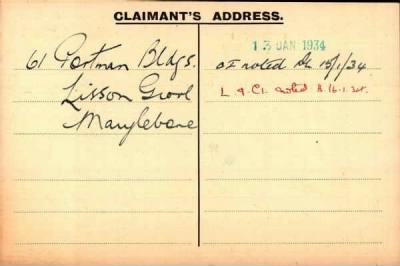 CLAIMANT'S ADDRESS.
61 Portman Bldgs.
Lisson Grove
Marylebone
13 JAN 1934
OF noted 15/1/34
L & Cl. noted 16.1.34.